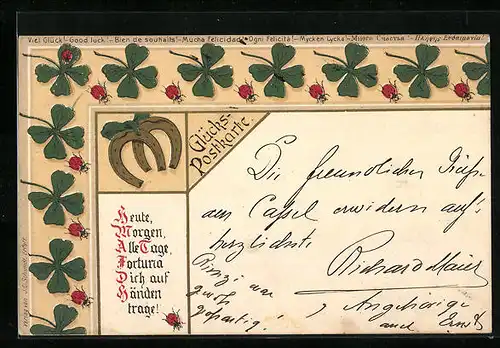 Viel Glück! - Good luck! - Bien de souhaits! - Mucha Felicidad! - Ogni Felicità! - Mycken Lycka!
Glücks-
Postkarte.
Heute,
Morgen,
Alle Tage,
Fortuna
Dich auf
Händen
trage!
Die freundlichen Grüße
aus Cassel erwidern auf's
herzlichste
Richard Maier
Angehörige
auch Ernst
Prinzi war